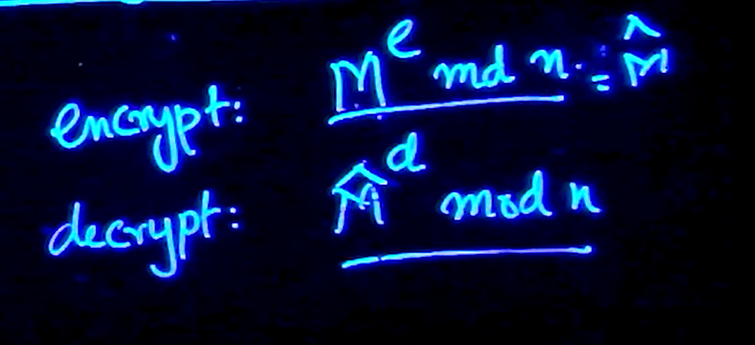 encrypt: M^e md n. = M̂
decrypt: M̂^d mod n